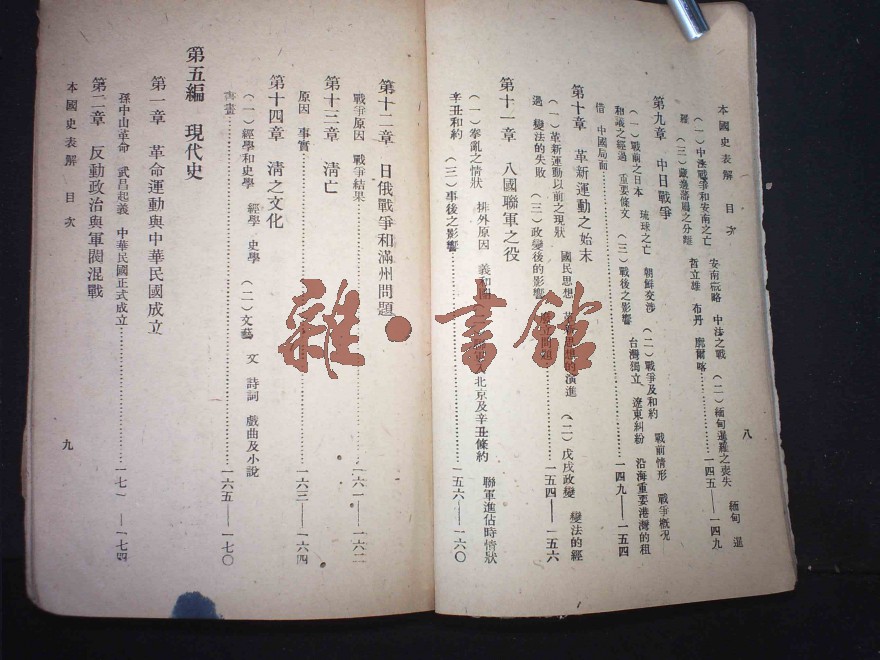 本國史表解 目次
八
(一)中法戰爭和安南之亡 安南概略 中法之戰 (二)緬甸暹羅之喪失 緬甸 暹
羅 (三)藏邊藩屬之分離 哲立雄 布丹 廓爾喀……一四五——一四九
第九章 中日戰爭
(一)戰前之日本 琉球之亡 朝鮮交涉 (二)戰爭及和約 戰前情形 戰爭概況
和議之經過 重要條文 (三)戰後之影響 台灣獨立 遼東糾紛 沿海重要港灣的租
借 中國局面……一四九——一五四
第十章 革新運動之始末
(一)革新運動以前之現狀 國民思想 的演進 (二)戊戌政變 變法的經
過 變法的失敗 (三)政變後的影響……一五四——一五六
第十一章 八國聯軍之役
(一)拳亂之情狀 排外原因 義和團 北京及辛丑條約 聯軍進佔時情狀
辛丑和約 (三)事後之影響……一五六——一六〇
第十二章 日俄戰爭和滿州問題
戰爭原因 戰爭結果……一六一——一六二
第十三章 清亡
原因 事實……一六三——一六四
第十四章 清之文化
(一)經學和史學 經學 史學 (二)文藝 文 詩詞 戲曲及小說
書畫……一六五——一七〇
第五編 現代史
第一章 革命運動與中華民國成立
孫中山革命 武昌起義 中華民國正式成立……一七一——一七四
第二章 反動政治與軍閥混戰
本國史表解 目次
九
雜·書館